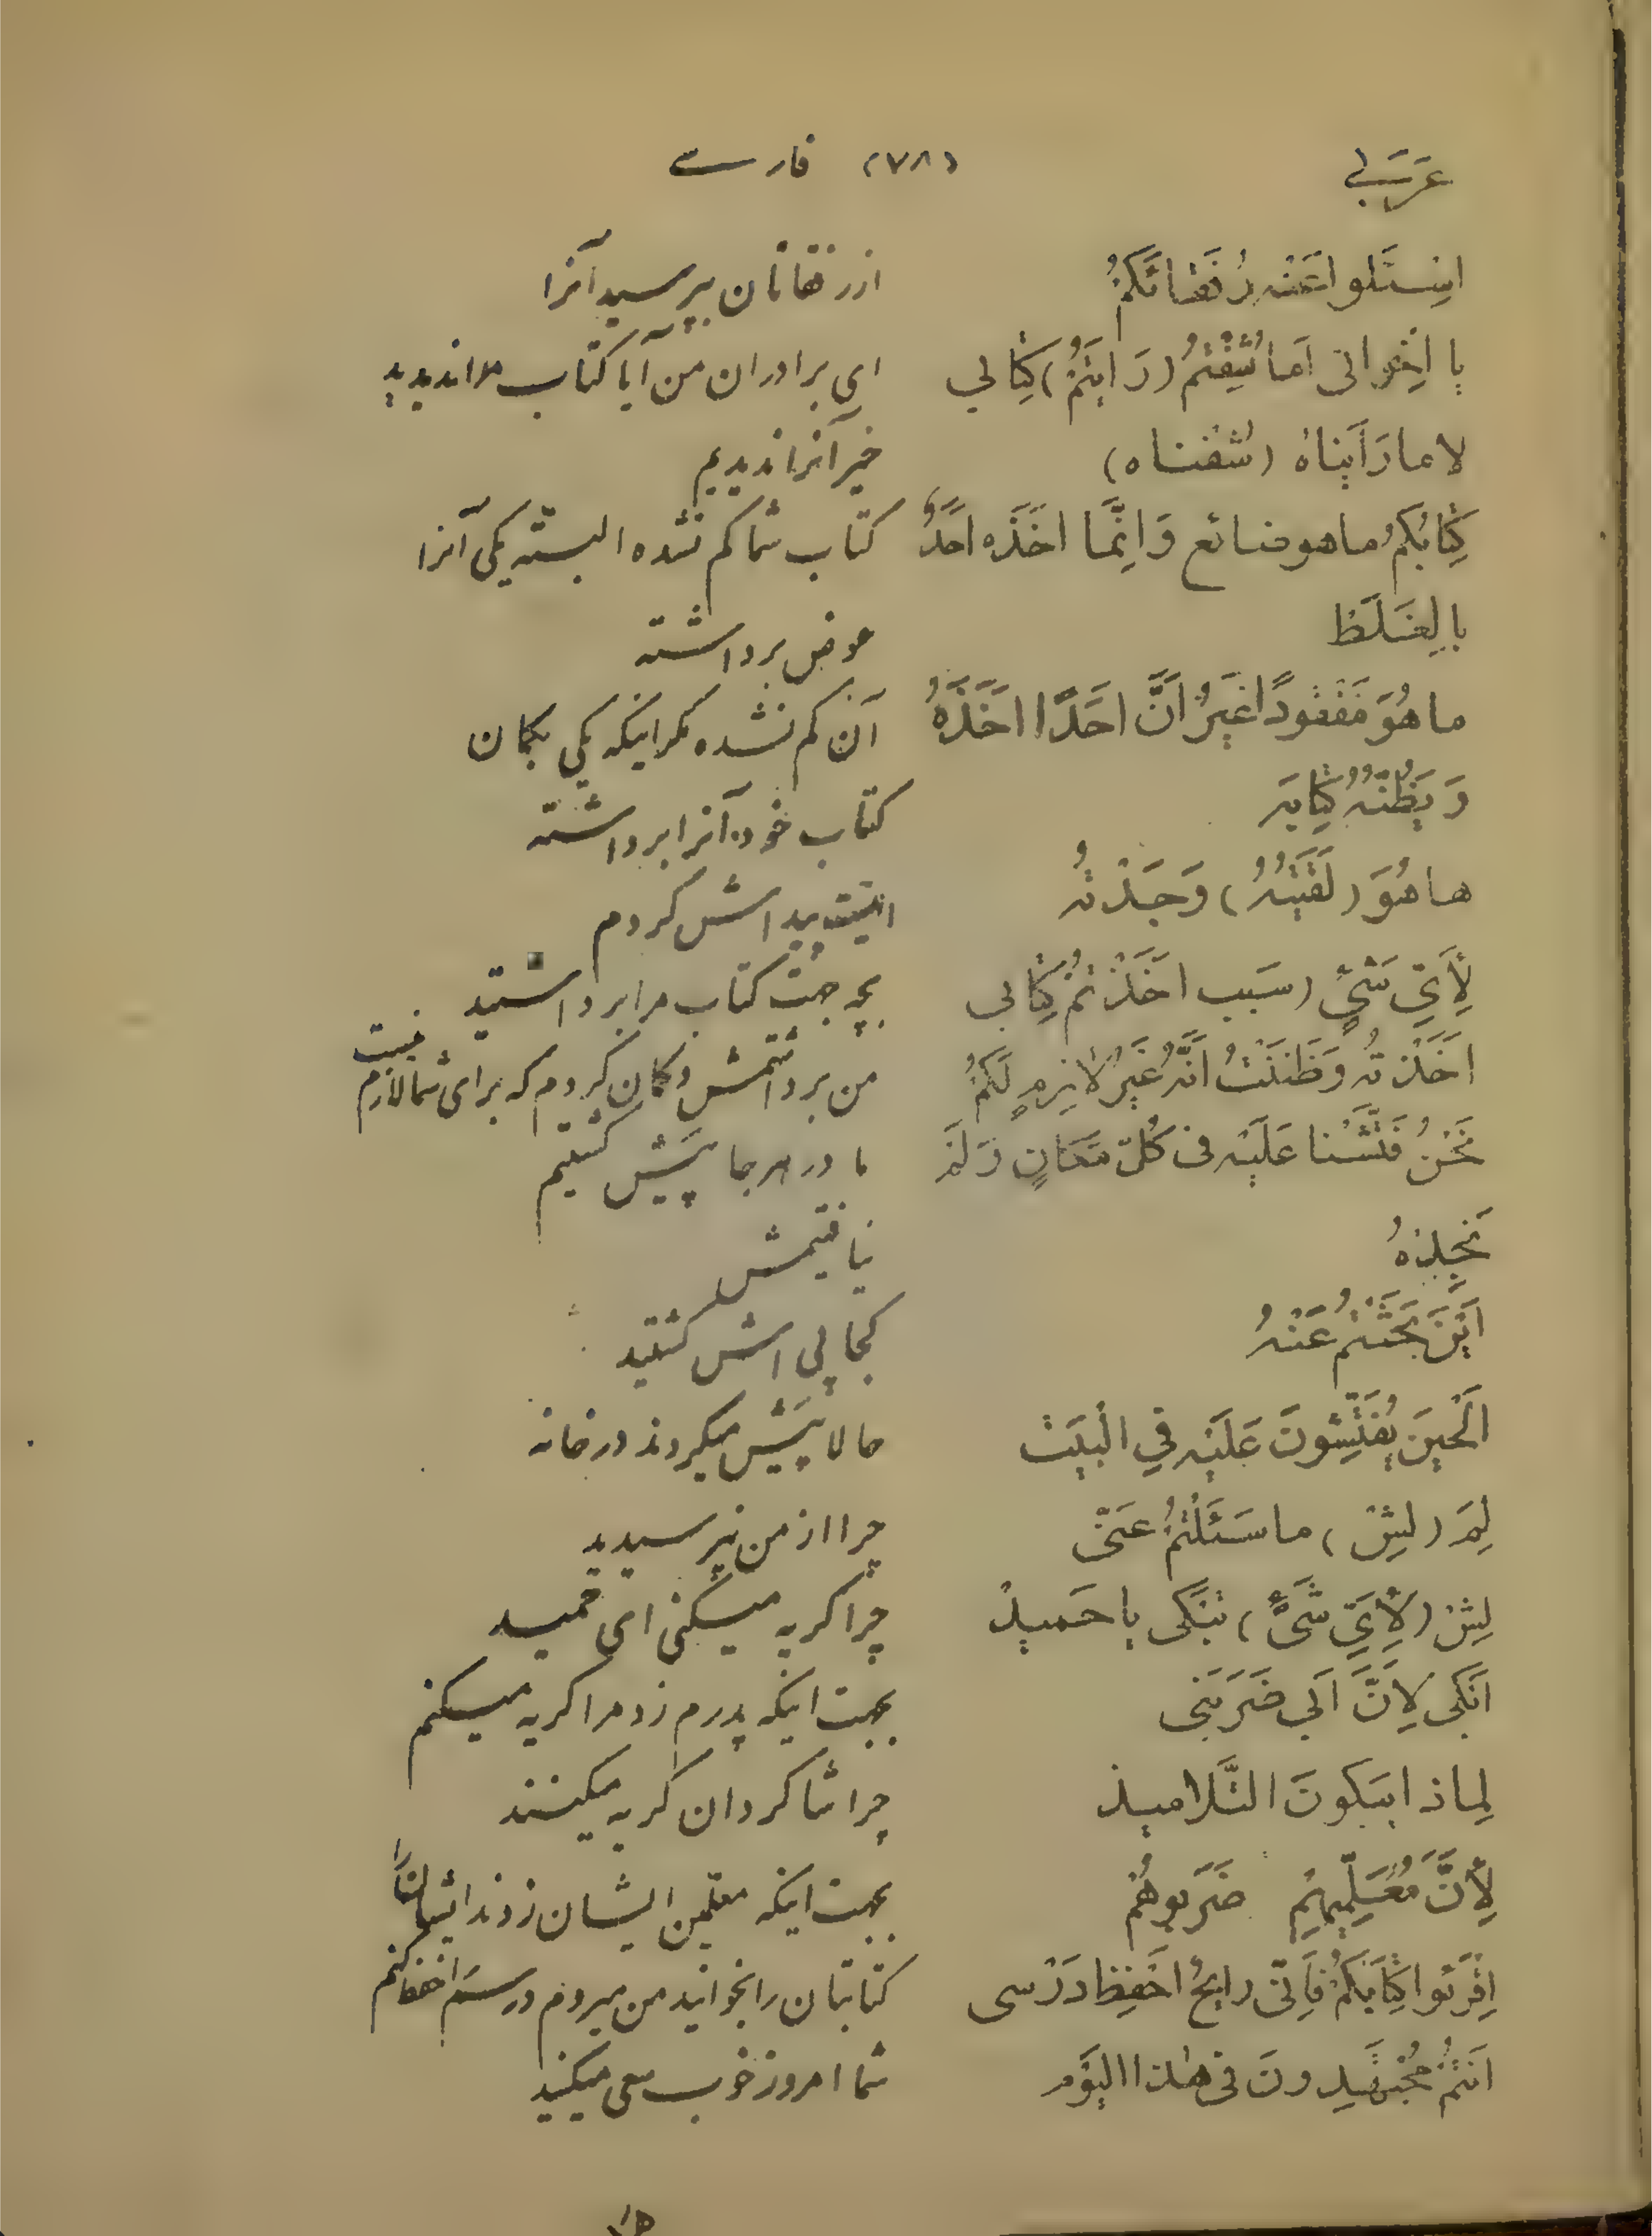 عَرَبِي (٧٨) فارسے
اِسْئَلوا عَنْه رُفَقائَكُمْ از رفقاتان بپرسید آنرا
یا اِخْوانی اَما شِفْتُمْ (رَایْتُمْ) کِتابی ای برادران من آیا کتاب مرا ندیدید
لا ما رَاَیْناهُ (شُفْناه) خیر آنرا ندیدیم
کِتابُکُمْ ماهو ضائع وَاِنَّما اخَذَه احَدٌ کتاب شما کم نشده البته یکی آنرا
بِالغَلَط عوض برداشته
ما هُوَ مَفْقُودًا غَیْرُ اَنَّ احَدًا اخَذَهُ آن کم نشده مکر اینکه یکی بکمان
وَ یَظُنُّهُ کِتابَه کتاب خود آنرا برداشته
ها هُوَ (لَقَیْتُهُ) وَجَدْتُه اینست پیداش کردم
لِأَیِّ شَیْءٍ (سَبَب اخَذْتُمْ کِتابی بچه جهت کتاب مرا برداشتید
اخَذْتُه وَظَنَنْتُ اَنَّهُ غَیْرُ لازِمٍ لَکُمْ من برداشتمش و کمان کردم که برای شما لازم نیست
نَحْنُ فَتَّشْنا عَلَیْه فی کُلّ مَکانٍ وَلَمْ ما در هرجا پَیَش کشتیم
نَجِدْهُ نیافتیمش
اَیْنَ بَحَثْتُمْ عَنْهُ کجا پی اش کشتید
اَلْحینَ یُفَتِّشُونَ عَلَیْه فِي الْبَیْت حالا پَیَش میکردند در خانه
لِمَ (لِیْش) ما سَئَلْتُمْ عَنّی چرا از من نپرسیدید
لِیْش (لِأَیِّ شَیْءٍ) تَبْکی یا حَمید چرا کریه میکنی ای حمید
اَبْکی لِاَنَّ اَبی ضَرَبَنی بجهت اینکه پدرم زد مرا کریه میکنم
لِماذا یَبکونَ التَّلامیذ چرا شاکردان کریه میکنند
لِأَنَّ مُعَلِّمیهُم ضَرَبوهُم بجهت اینکه معلمین ایشان زدند ایشانرا
اِقْرَئوا کِتابَکُمْ فَاِنّی رایحُ احْفِظ دَرْسی کتابتان را بخوانید من میروم درسم را حفظ کنم
اَنْتُمْ مُجْتَهِدونَ فی هٰذا الیَوْم شما امروز خوب سعی میکنید